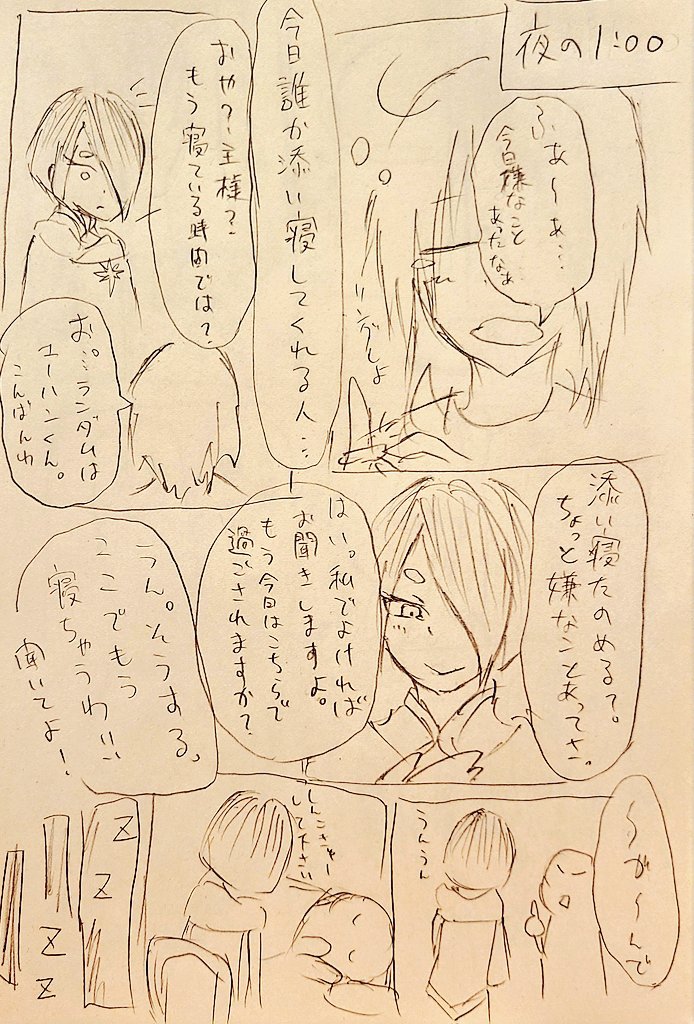 夜の1:00
ふぁ〜ぁ…
今日嫌なこと
あったなぁ
今日誰か添い寝してくれる人…
おや?主様?
もう寝ている時間では?
お…ランダムは
ユーハンくん。
こんばんわ
添い寝たのめる?。
ちょっと嫌なことあってさ。
はい。私でよければ
お聞きしますよ。
もう今日はこちらで
過ごされますか?
うん。そうする。
ここでもう
寝ちゃうわ!!
聞いてよ!
〜が〜んで
うんうん
して下さい
Z
Z
Z
Z